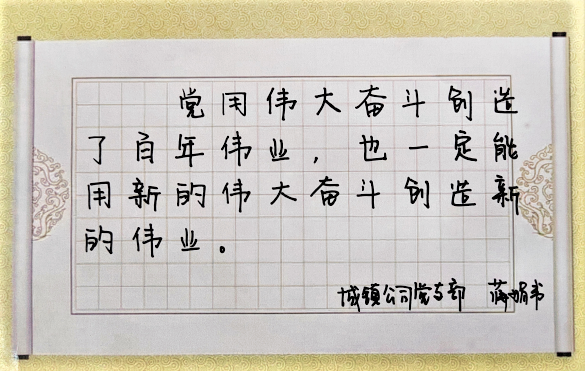 党用伟大奋斗创造
了百年伟业，也一定能
用新的伟大奋斗创造新
的伟业。
城镇公司党支部 蒋娟书